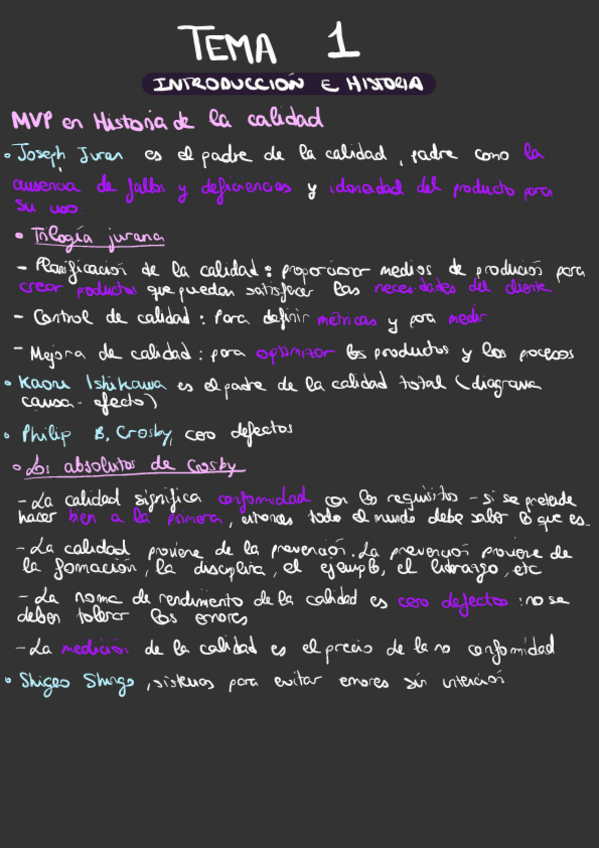 TEMA 1
INTRODUCCIÓN E HISTORIA
MVP en Historia de la calidad
• Joseph Juran es el padre de la calidad, padre como la
ausencia de fallos y deficiencias y idoneidad del producto para
su uso
• Trilogía jurana
- Planificación de la calidad: proporcionar medios de producción para
crear productos que puedan satisfacer las necesidades del cliente
- Control de calidad: Para definir métricas y para medir
- Mejora de calidad: para optimizar los productos y los procesos
• Kaoru Ishikawa es el padre de la calidad total (diagrama
causa-efecto)
• Philip B. Crosby, cero defectos
• Los absolutos de Crosby
- La calidad significa conformidad con los requisitos - si se pretende
hacer bien a la primera, entonces todo el mundo debe saber lo que es
- La calidad proviene de la prevención. La prevención proviene de
la formación, la disciplina, el ejemplo, el liderazgo, etc
- La norma de rendimiento de la calidad es cero defectos: no se
deben tolerar los errores
- La medición de la calidad es el precio de la no conformidad
• Shigeo Shingo, sistemas para evitar errores sin intención